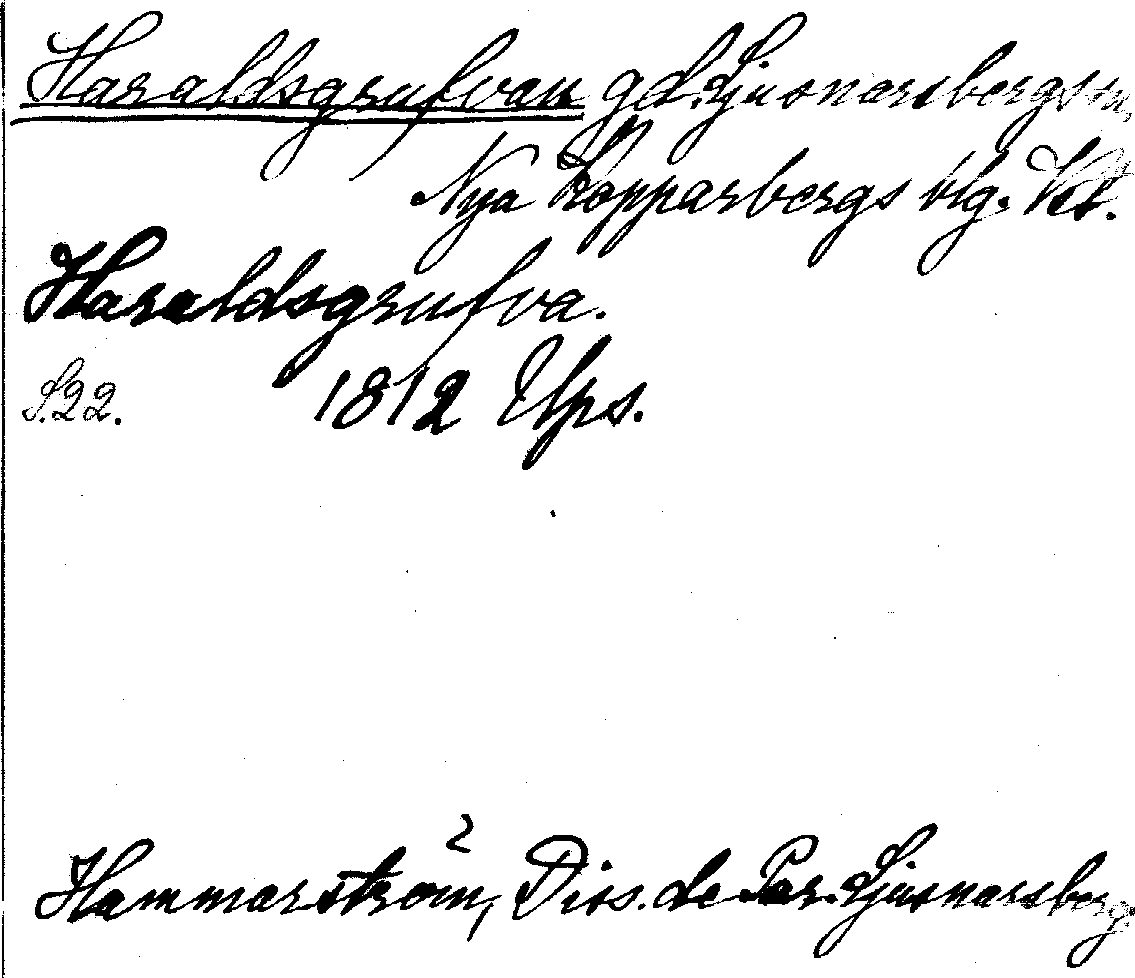 Haraldsgrufvan gd. Ljusnarsbergs sn,
Nya Kopparbergs blg. Vstl.
Haraldsgrufva.
S.22. 1812 Ups.
Hammarström, Diss. de Par. Ljusnarsberg.